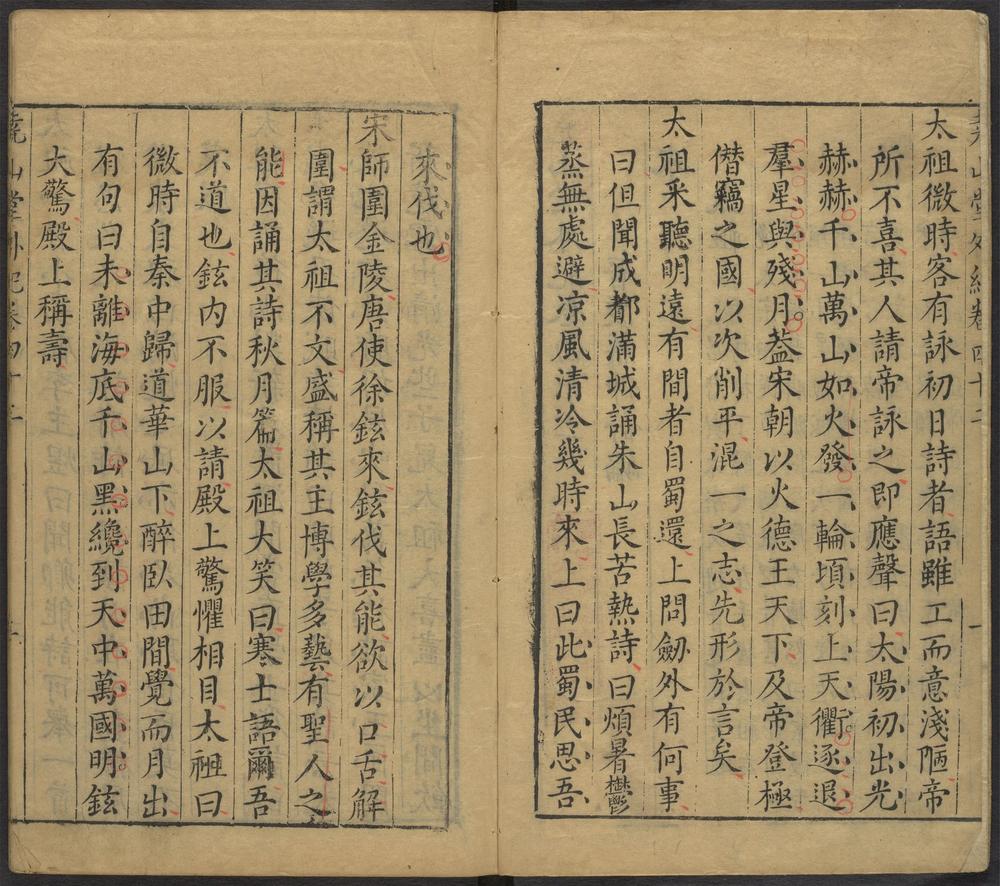 太祖微時客有詠初日詩者語雖工而意淺陋帝
所不喜其人請帝詠之即應聲曰太陽初出光
赫赫千山萬山如火發一輪頃刻上天衢逐退
羣星與殘月葢宋朝以火德王天下及帝登極
僭竊之國以次削平混一之志先形於言矣
太祖采聽明遠有間者自蜀還上問劔外有何事
曰但聞成都滿城誦朱山長苦熱詩曰煩暑鬱
蒸無處避凉風清冷幾時來上曰此蜀民思吾
來伐也
宋師圍金陵唐使徐鉉來鉉伐其能欲以口舌解
圍謂太祖不文盛稱其主博學多藝有聖人之
能因誦其詩秋月篇太祖大笑曰寒士語爾吾
不道也鉉内不服以請殿上驚懼相目太祖曰
微時自秦中歸道華山下醉臥田間覺而月出
有句曰未離海底千山黑纔到天中萬國明鉉
大驚殿上稱壽
堯山堂外紀卷四十二